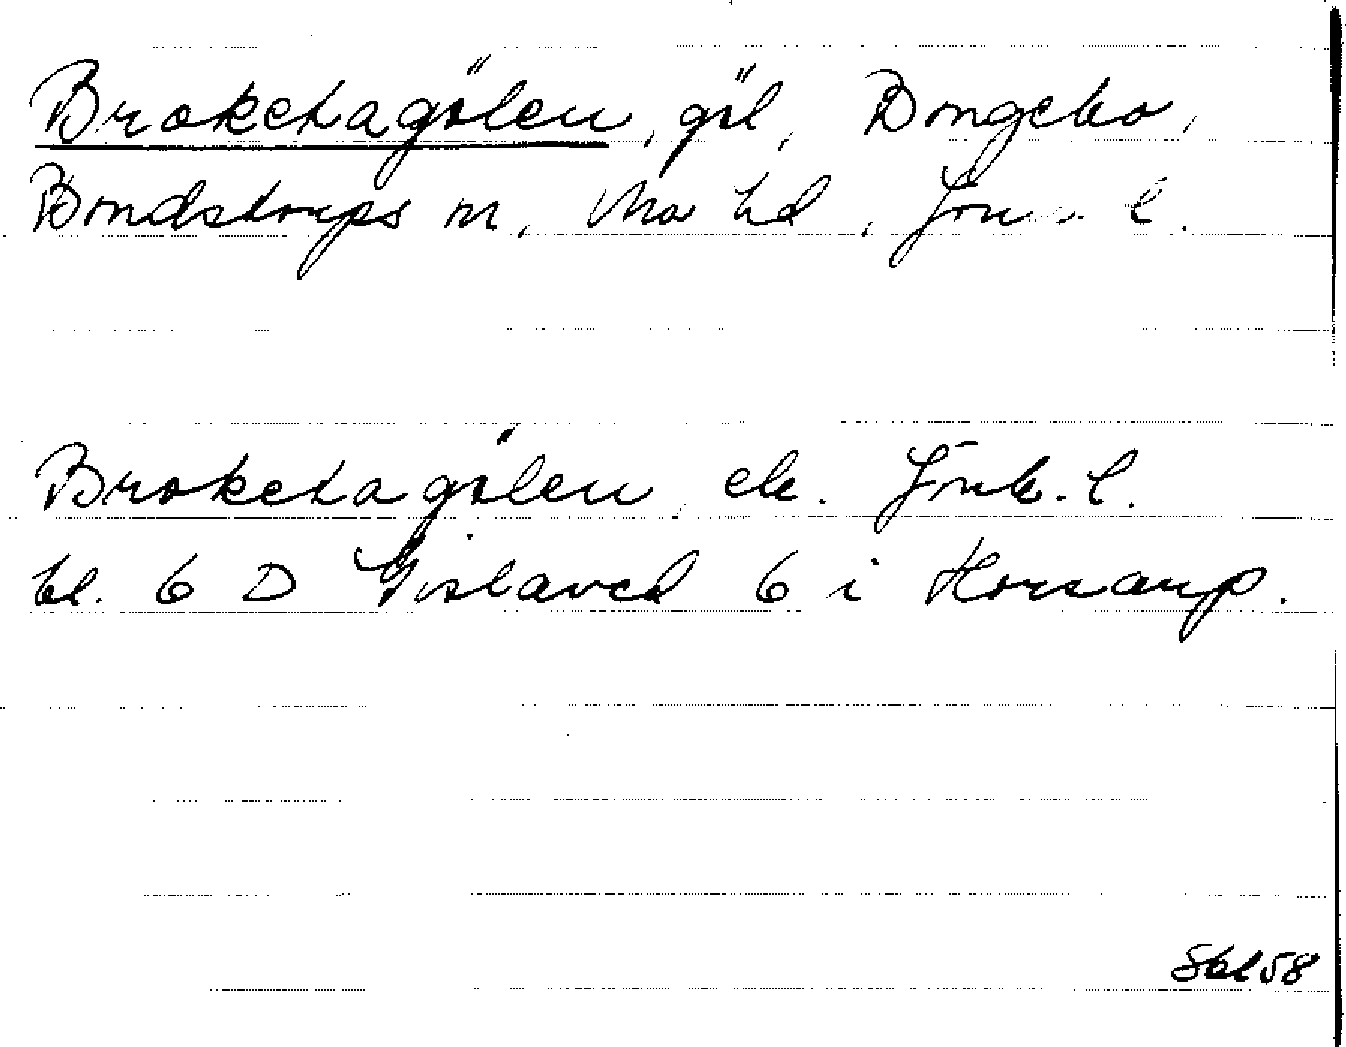 Broketagölen, göl, Bongebo,
Bondstorps sn, Mo hd, Jönk. l.
Broketagölen ek. Jönk. l.
bl. 6 D Gislaved 6 i Horsarp.
Sbl 58